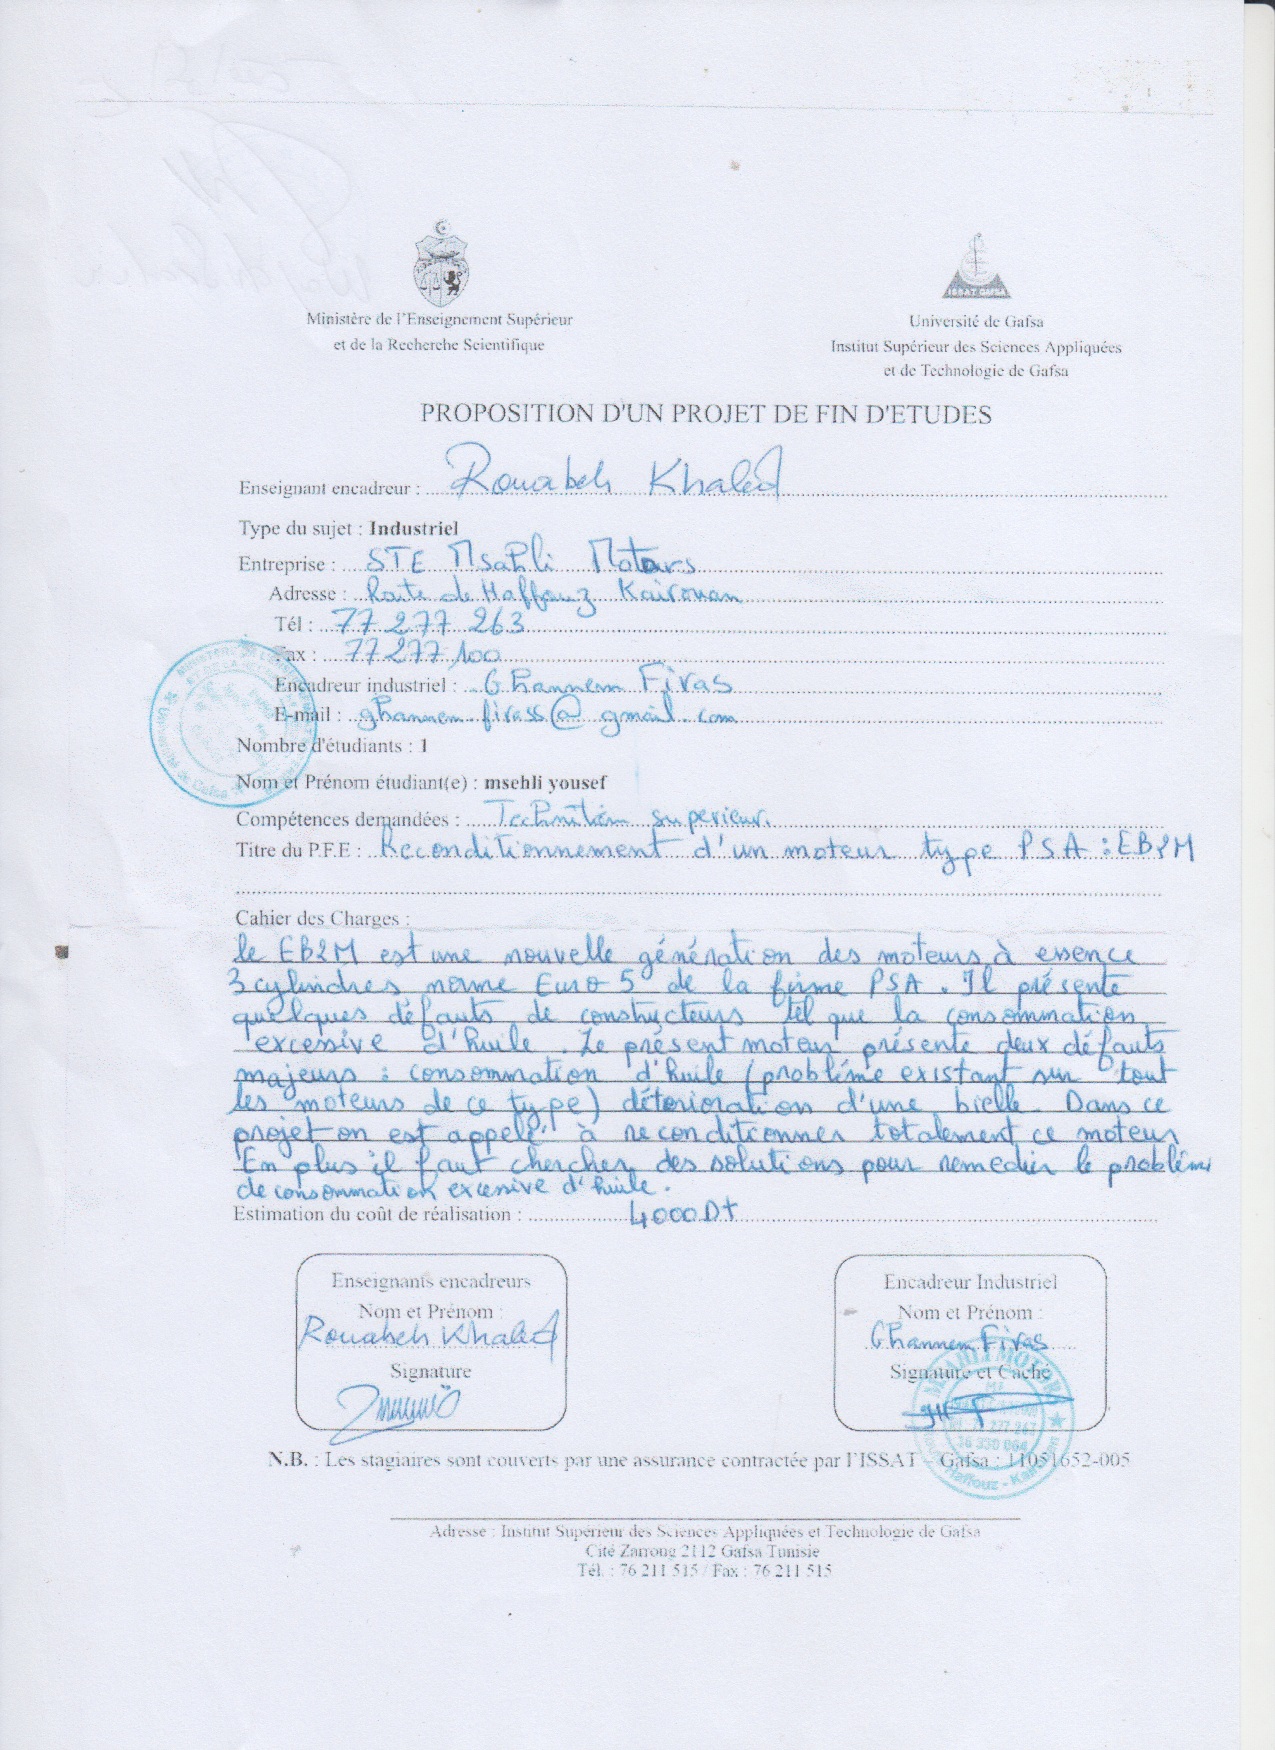 Ministère de l'Enseignement Supérieur
et de la Recherche Scientifique
ISSAT GAFSA
Université de Gafsa
Institut Supérieur des Sciences Appliquées
et de Technologie de Gafsa
PROPOSITION D'UN PROJET DE FIN D'ETUDES
Enseignant encadreur : Rouabeh Khaled
Type du sujet : Industriel
Entreprise : STE Msahli Motors
Adresse : Route de Haffouz Kairouan
Tél : 77 277 263
Fax : 77 277 100
Encadreur industriel : Ghannem Firas
E-mail : ghannem.firass@gmail.com
Nombre d'étudiants : 1
Nom et Prénom étudiant(e) : msehli yousef
Compétences demandées : Technicien superieur.
Titre du P.F.E : Reconditionnement d'un moteur type PSA : EB2M
Cahier des Charges :
le EB2M est une nouvelle génération des moteurs à essence
3 cylindres norme Euro 5 de la firme PSA. Il présente
quelques défauts de constructeurs tel que la consommation
excessive d'huile. Le présent moteur présente deux défauts
majeurs : consommation d'huile (probléme existant sur tout
les moteurs de ce type) détérioration d'une bielle. Dans ce
projet on est appelé à reconditionner totalement ce moteur
En plus il faut chercher des solutions pour remedier le problém
de consommation excessive d'huile.
Estimation du coût de réalisation : 4000Dt
Enseignants encadreurs
Nom et Prénom :
Rouabeh Khaled
Signature
Encadreur Industriel
Nom et Prénom :
Ghannem Firas
Signature et Caché
N.B. : Les stagiaires sont couverts par une assurance contractée par l'ISSAT – Gafsa : 11051652-005
Adresse : Institut Supérieur des Sciences Appliquées et Technologie de Gafsa
Cité Zarroug 2112 Gafsa Tunisie
Tél. : 76 211 515 / Fax : 76 211 515